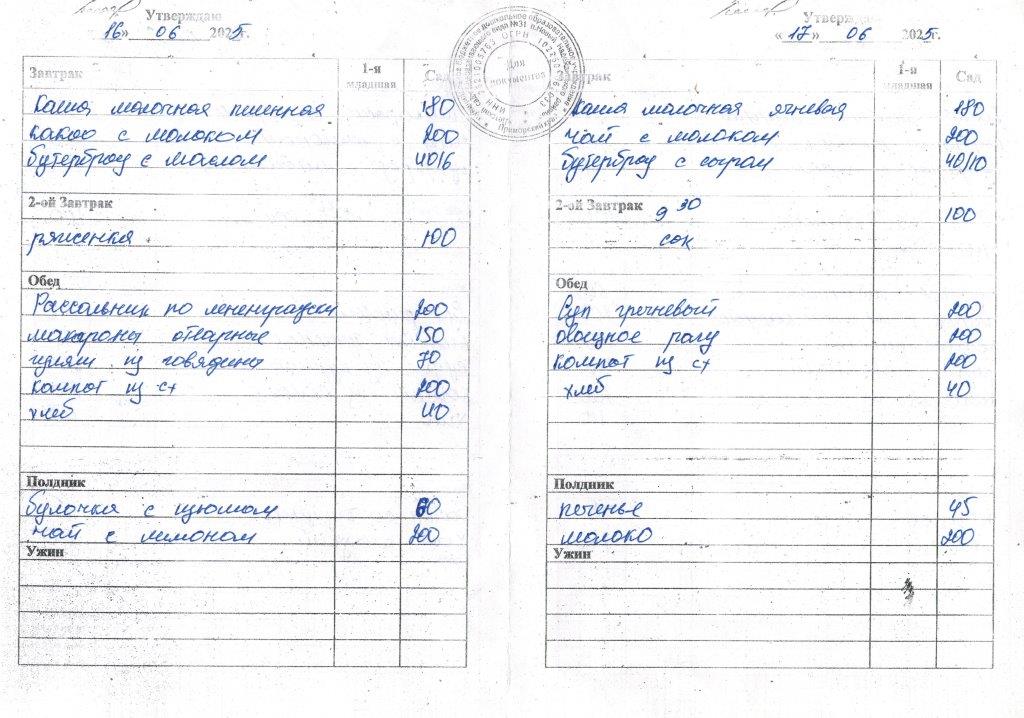 Утверждаю
"16" 06 2025г.
Завтрак 1-я младшая Сад
Каша молочная пшенная 180
какао с молоком 200
бутерброд с маслом 40/6
2-ой Завтрак
ряженка 100
Обед
Рассольник по ленинградски 200
макароны отварные 150
гуляш из говядины 70
компот из сх 200
хлеб 40
Полдник
булочка с изюмом 60
чай с лимоном 200
Ужин
Для документов
Утверждаю
"17" 06 2025г.
Завтрак 1-я младшая Сад
Каша молочная ячневая 180
чай с молоком 200
бутерброд с сыром 40/10
2-ой Завтрак 9 30 100
сок
Обед
Суп гречневый 200
овощное рагу 200
компот из сх 200
хлеб 40
Полдник
печенье 45
молоко 200
Ужин